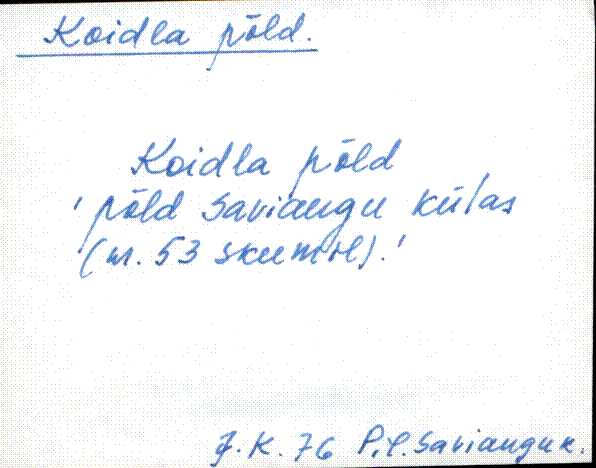 Koidla põld.
Koidla põld
'põld Saviaugu külas
(nr. 53 skeemil).'
J.K. 76 P.l. Saviaugu k.